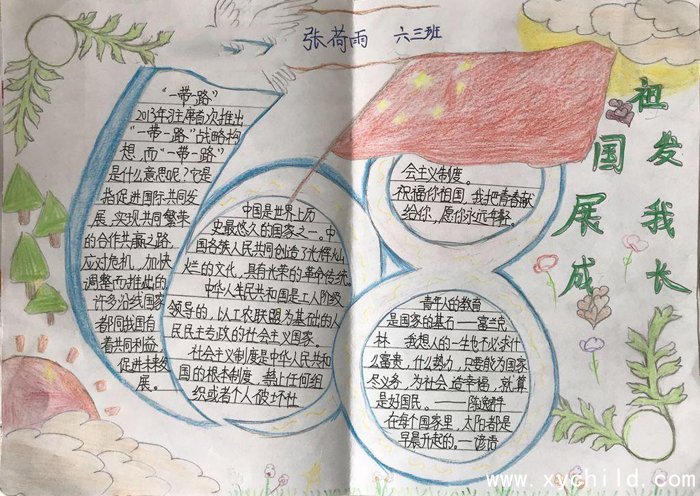 张荷雨 六三班
祖国发展我成长
"一带一路"
2013年习主席首次推出
"一带一路"战略构
想,而"一带一路"
是什么意思呢?它是
指促进国际共同发
展,实现共同繁荣
的合作共赢之路,
应对危机,加快
调整而推出的
许多沿线国家
都同我国有
着共同利益
促进
展。
中国是世界上历
史最悠久的国家之一。中
国各族人民共同创造了光辉灿
烂的文化,具有光荣的革命传统。
中华人民共和国是工人阶级
领导的,以工农联盟为基础的人
民民主专政的社会主义国家。
社会主义制度是中华人民共和
国的根本制度。禁止任何组
织或者个人破坏社
会主义制度。
祝福你祖国,我把青春献
给你,愿你永远年轻。
青年人的教育
是国家的基石——富兰克
林 我想人的一生也不必求什
么富贵,什么势力,只要能为国家
尽义务,为社会造幸福,就算
是好国民。——陶
在每个国家里,太阳都是
早晨升起的。——谚语
www.xychild.com